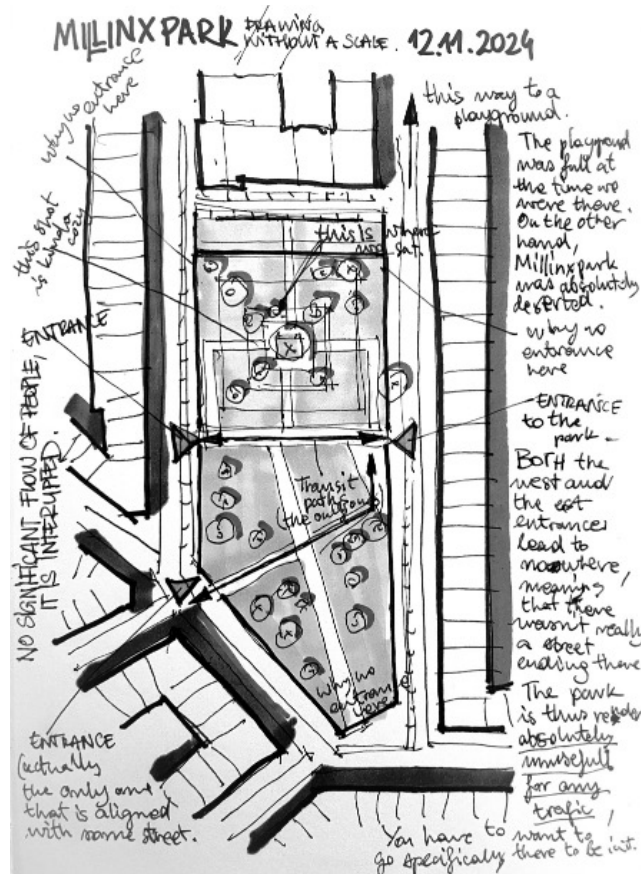 MILLINXPARK DRAWING
WITHOUT A SCALE. 12.11.2024
why no
entrance
here
this spot
is kinda
cozy
ENTRANCE
NO SIGNIFICANT FLOW OF PEOPLE,
IT IS INTERUPTED.
this is where
we sat.
this way to a
playground.
The playground
was full at
the time we
were there.
On the other
hand,
Millinxpark
was absolutely
deserted.
why no
entrance
here
ENTRANCE
to the
park -
BOTH the
west and
the east
entrances
lead to
nowhere,
meaning
that there
wasn't really
a street
ending there
The park
is thus
absolutely
unusefull
for any
trafic,
Transit
path
(the only one)
why no
entrance
here
ENTRANCE
(actually
the only one
that is aligned
with some street.
You have to want to
go specifically there to be in it.